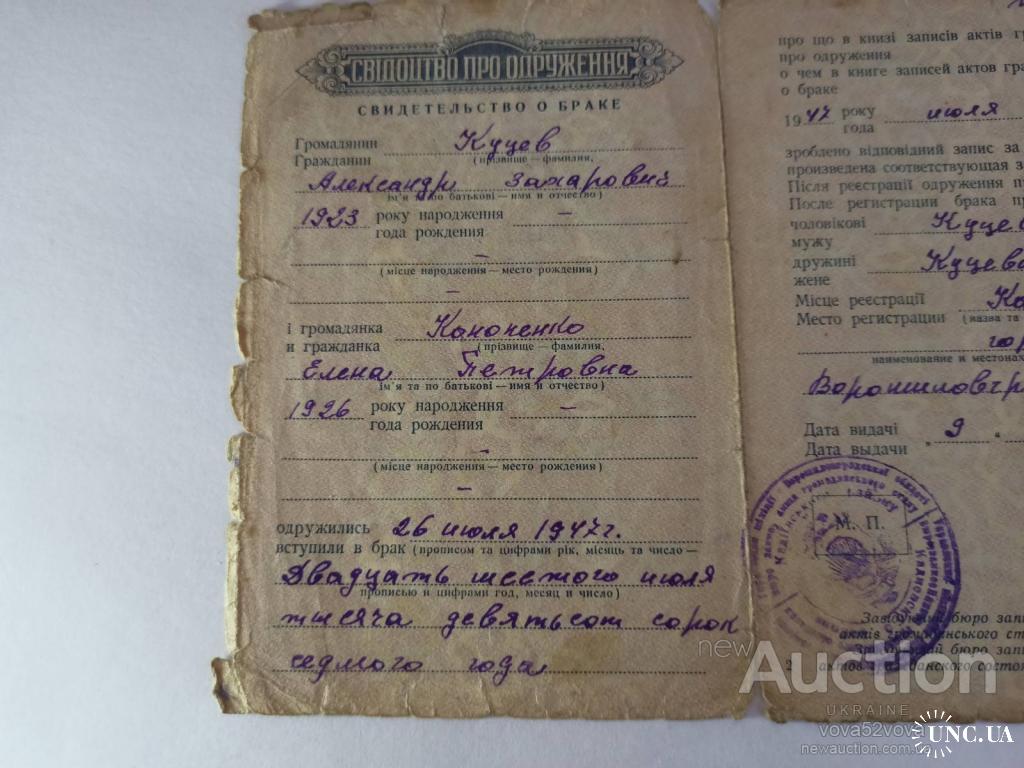 СВІДОЦТВО ПРО ОДРУЖЕННЯ
СВИДЕТЕЛЬСТВО О БРАКЕ
Громадянин Куцев
Гражданин (прізвище — фамилия,
Александр Захарович
ім'я та по батькові — имя и отчество)
1923 року народження —
года рождения
—
(місце народження — место рождения)
—
і громадянка Кононенко
и гражданка (прізвище — фамилия,
Елена Петровна
ім'я та по батькові — имя и отчество)
1926 року народження —
года рождения
—
(місце народження — место рождения)
—
одружились 26 июля 1947г.
вступили в брак (прописом та цифрами рік, місяць та число —
Двадцать шестого июля
прописью и цифрами год, месяц и число)
тысяча девятьсот сорок
седмого года
про що в книзі записів актів
про одруження
о чем в книге записей актов
о браке
1947 року июля
года
зроблено відповідний запис за
произведена соответствующая
Після реєстрації одруження
После регистрации брака
чоловікові
мужу
дружині Куцева
жене
Місце реєстрації
Место регистрации (назва та
наименование и
Дата видачі „9
Дата выдачи
М. П.
бюро
актів громадянського
бюро
2 актов гражданского
newAuction
UKRAINE
vova52vova
newauction.com.ua
UNC.UA